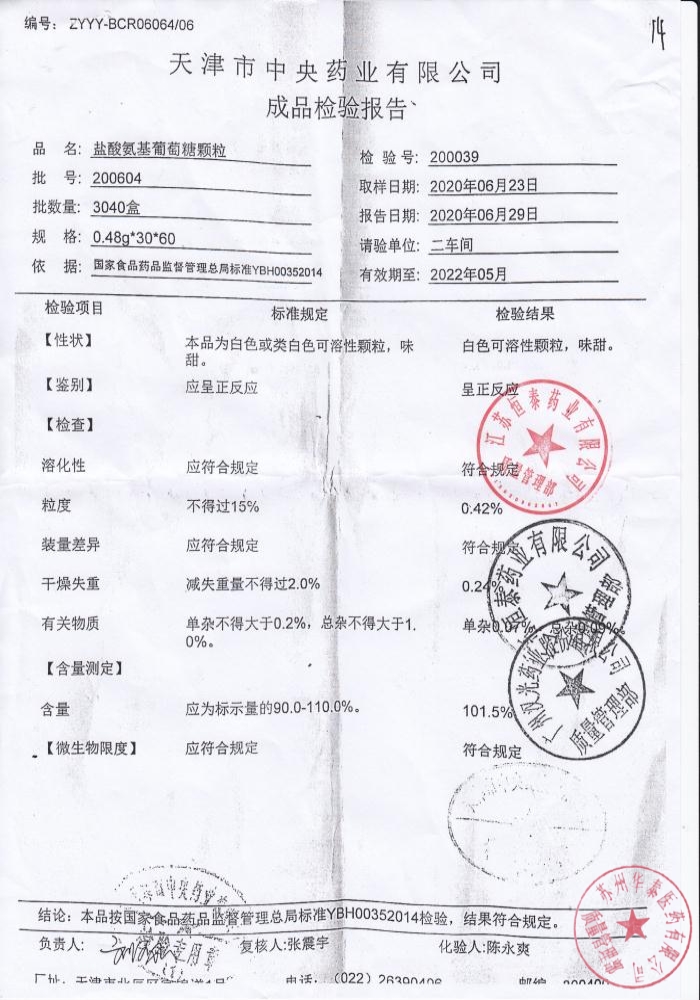 编号: ZYYY-BCR06064/06
14
天津市中央药业有限公司
成品检验报告
品 名: 盐酸氨基葡萄糖颗粒
检 验 号: 200039
批 号: 200604
取样日期: 2020年06月23日
批数量: 3040盒
报告日期: 2020年06月29日
规 格: 0.48g*30*60
请验单位: 二车间
依 据: 国家食品药品监督管理总局标准YBH00352014
有效期至: 2022年05月
检验项目 标准规定 检验结果
【性状】 本品为白色或类白色可溶性颗粒，味甜。 白色可溶性颗粒，味甜。
【鉴别】 应呈正反应 呈正反应
【检查】
溶化性 应符合规定 符合规定
粒度 不得过15% 0.42%
装量差异 应符合规定 符合规定
干燥失重 减失重量不得过2.0% 0.24%
有关物质 单杂不得大于0.2%，总杂不得大于1.0%。 单杂0.07% 总杂0.09%。
【含量测定】
含量 应为标示量的90.0-110.0%。 101.5%
【微生物限度】 应符合规定 符合规定
江苏恒泰药业有限公司
质量管理部
恒泰药业有限公司
质量管理部
苏州华泰医药有限公司
结论: 本品按国家食品药品监督管理总局标准YBH00352014检验，结果符合规定。
负责人: 复核人:张震宇 化验人:陈永爽
厂址: 天津市北辰区 电话: (022) 26390406 邮编